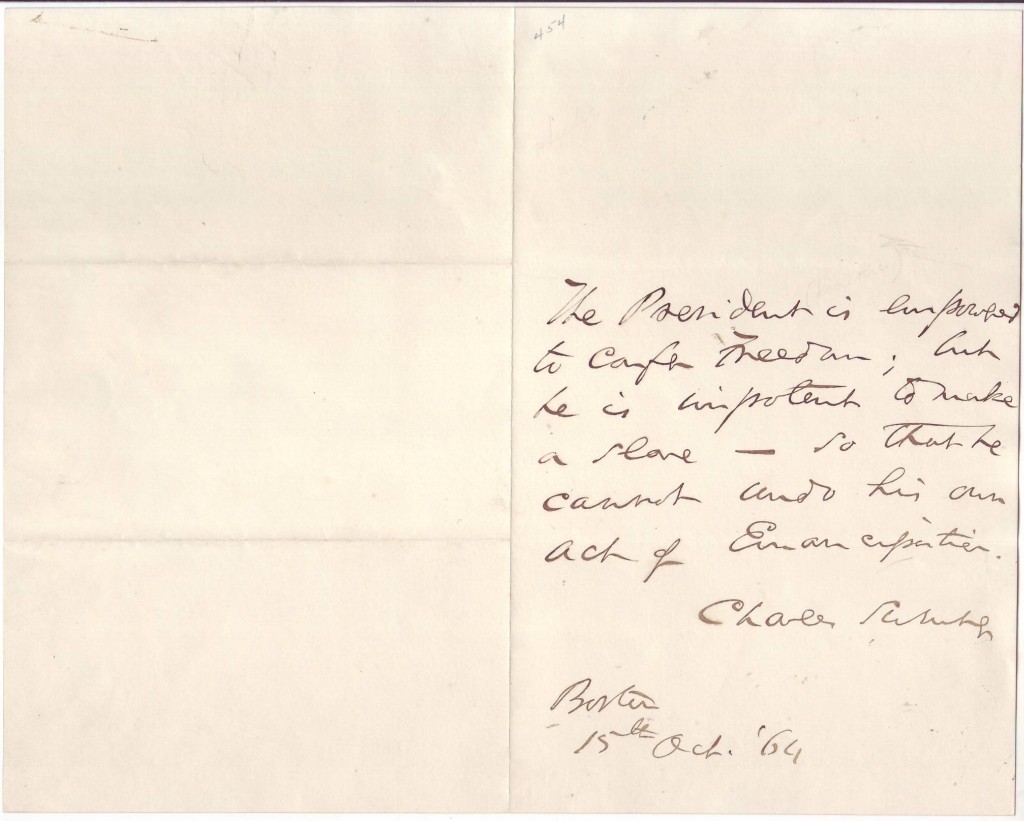 454
The President is empowered
to confer Freedom; but
he is impotent to make
a slave — so that he
cannot undo his own
act of Emancipation.
Charles Sumner
Boston
15th Oct. '64